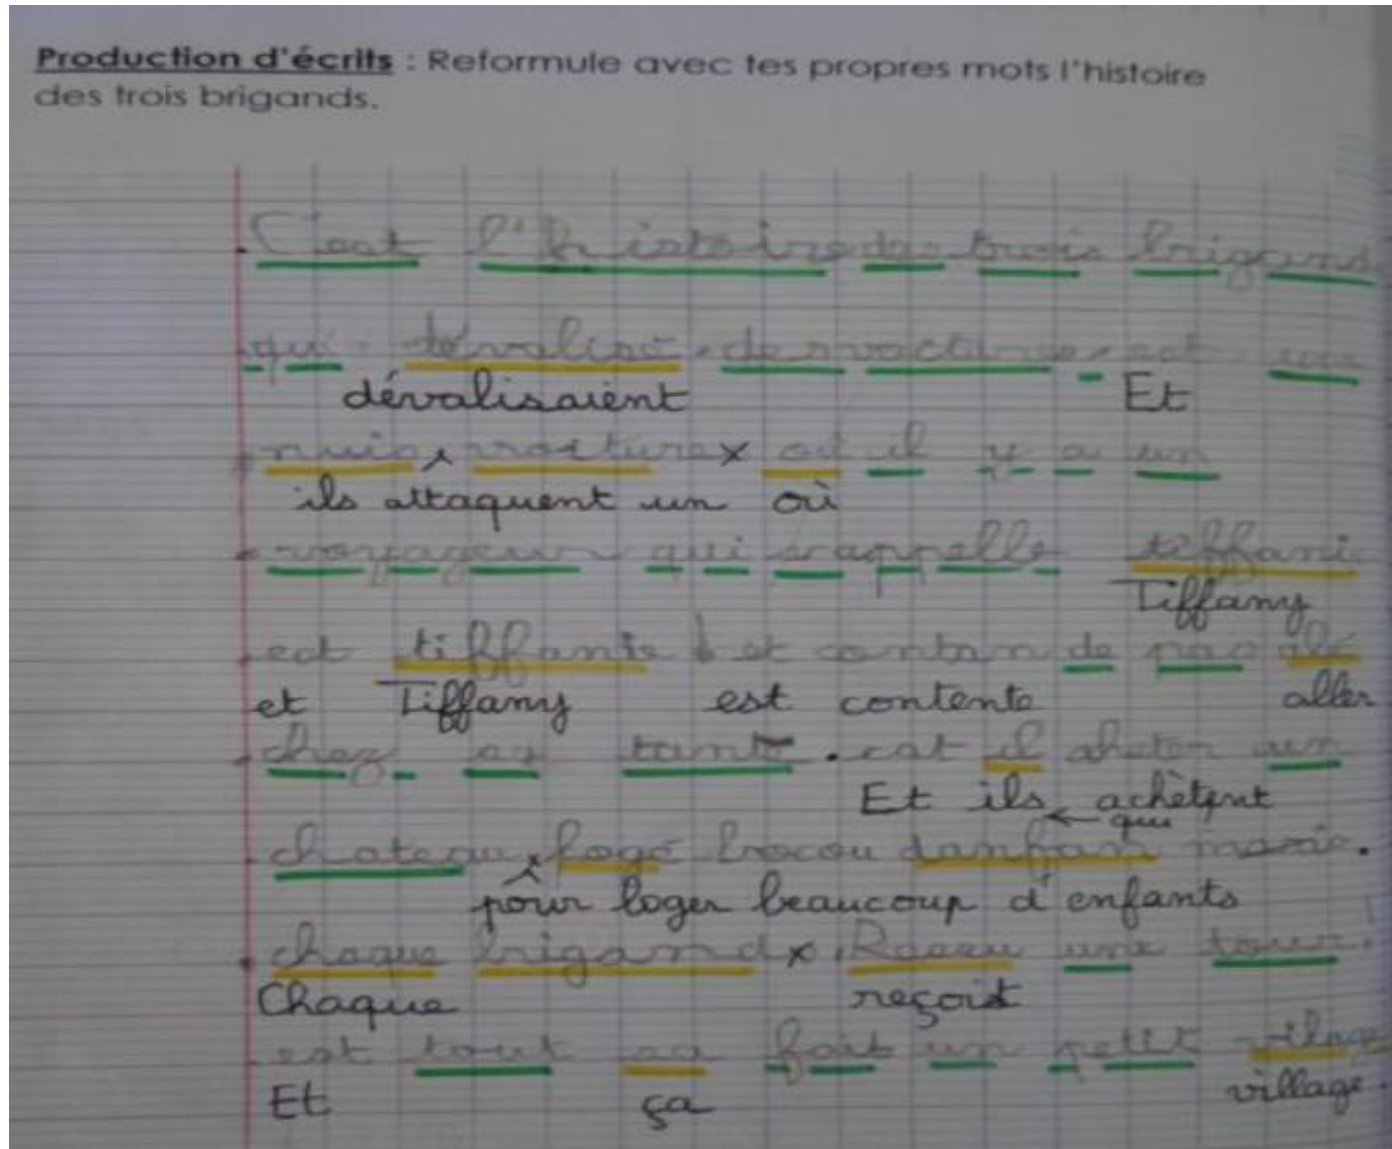 Production d'écrits : Reformule avec tes propres mots l'histoire
des trois brigands.
C'est l'histoire des trois brigans
qui dévalisé des voitures est une
dévalisaient Et
nuis voitures où il y a un
ils attaquent un où
voyageur qui s'appelle tiffani
Tiffany
est tiffanie et contan de pas alé
et Tiffany est contente aller
chez sa tante. est il acheter un
Et ils achètent
qui
chateau logé bocou danfan
pour loger beaucoup d'enfants
chaque brigand une tour.
Chaque reçoit
est tout sa fait un petit vilage
Et ça village.